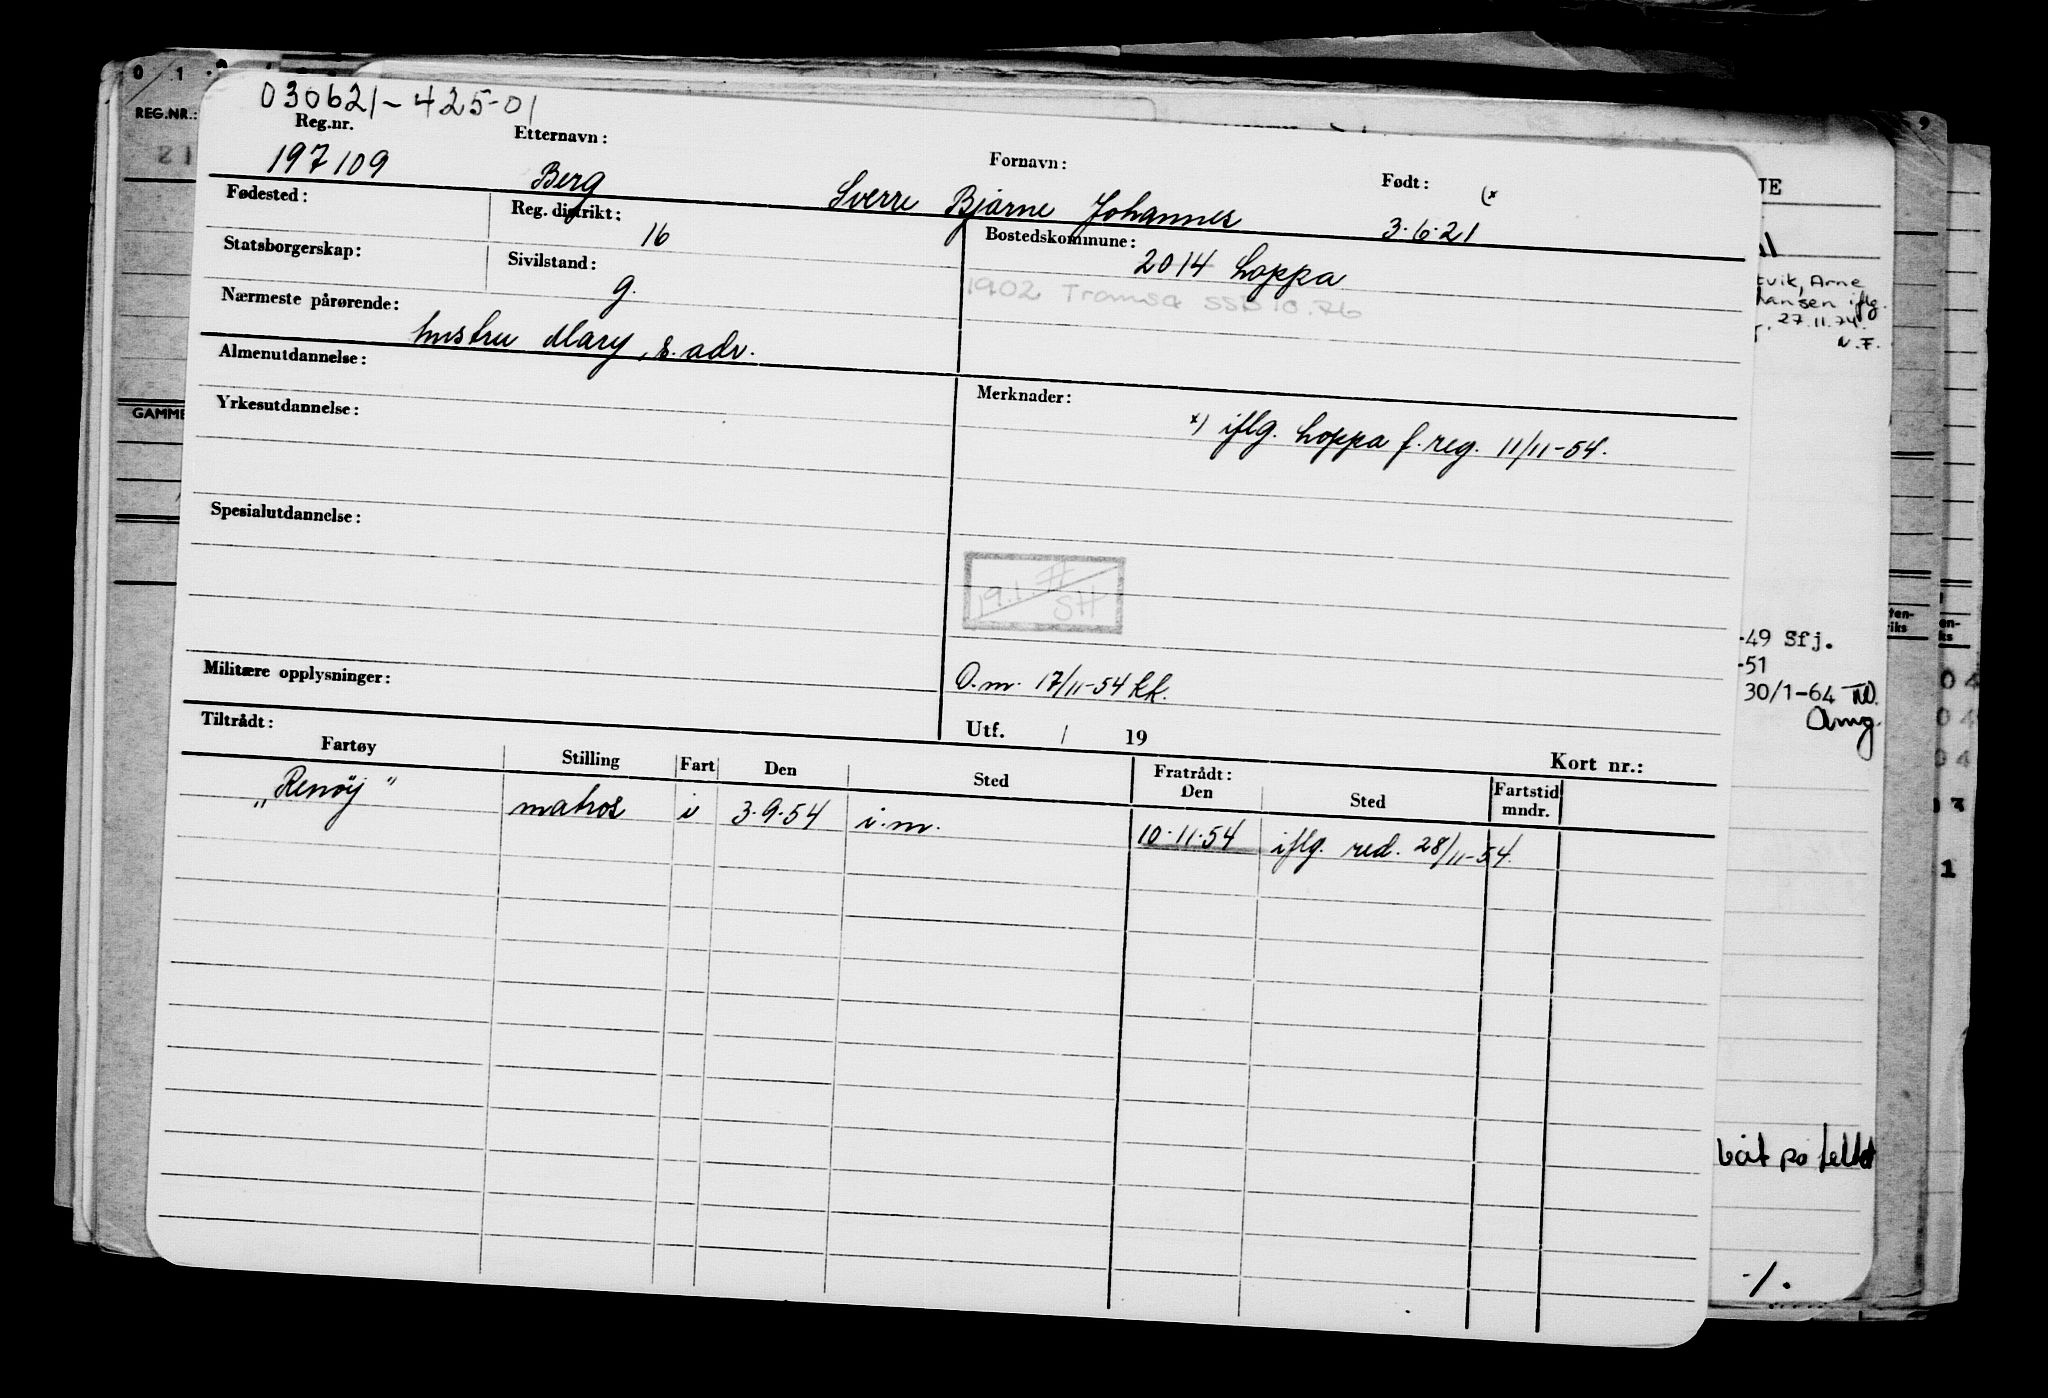 030621-425-01
Reg.nr. Etternavn: Fornavn: Født: (x
197109 Berg Sverre Bjarne Johannes 3.6.21
Fødested: Reg. distrikt: 16 Bostedskommune: 2014 Loppa
1902 Tromsø SSB 10.76
Statsborgerskap: Sivilstand: g.
Nærmeste pårørende: hustru Mary, s. adr.
Almenutdannelse: Merknader:
x) iflg. Loppa f.reg. 11/11-54.
Yrkesutdannelse:
Spesialutdannelse:
19.1.77
SH
Militære opplysninger: O.m. 17/11-54 kk.
Utf. / 19 Kort nr.:
Tiltrådt: Fratrådt:
Fartøy Stilling Fart Den Sted Den Sted Fartstid mndr.
"Renøy" matros i 3.9.54 i.m. 10.11.54 iflg. red. 28/11-54.
0 1
REG.NR.:
21
GAMME
9
UE
tvik, Arne
hansen iflg.
27.11.74.
N.F.
-49 Sfj.
-51
30/1-64 ND.
Amg.
båt på feltet
-/.
ten-
riks
en-
ks
04
04
04
13
1